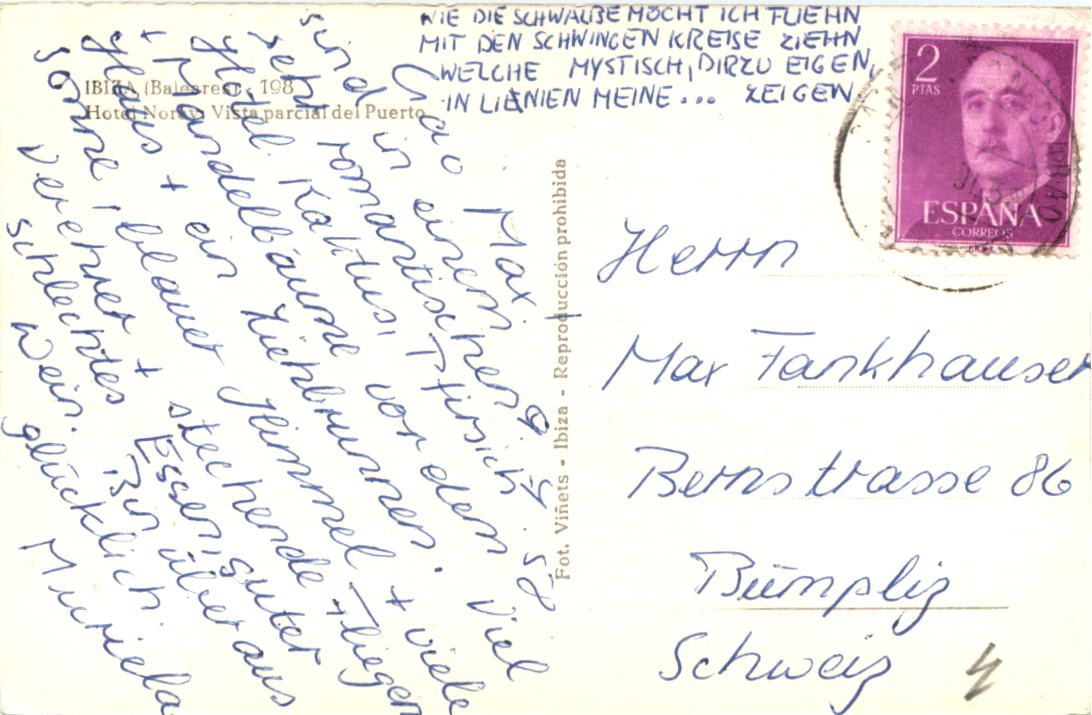 WIE DIE SCHWALBE MÖCHT ICH FLIEHN
MIT DEN SCHWINGEN KREISE ZIEHN
WELCHE MYSTISCH, DIR ZU EIGEN,
IN LIENIEN MEINE... ZEIGEN.
IBIZA (Baleares) - 198
Hotel Noray. Vista parcial del Puerto
Ciao Max. 9.4.58
Sind in einem
sehr romantischen
Hotel. Kaktus, Pfirsich
+ Mandelbäume vor dem
Haus + ein Ziehbrunnen. Viel
Sonne, blauer Himmel + viele
Verehrer + stechende Fliegen
schlechtes Essen, guter
Wein. Bin überaus
glücklich
Muriela
Fot. Viñets - Ibiza - Reproducción prohibida
2
PTAS
ESPAÑA
CORREOS
Herrn
Max Fankhauser
Bernstrasse 86
Bümpliz
Schweiz